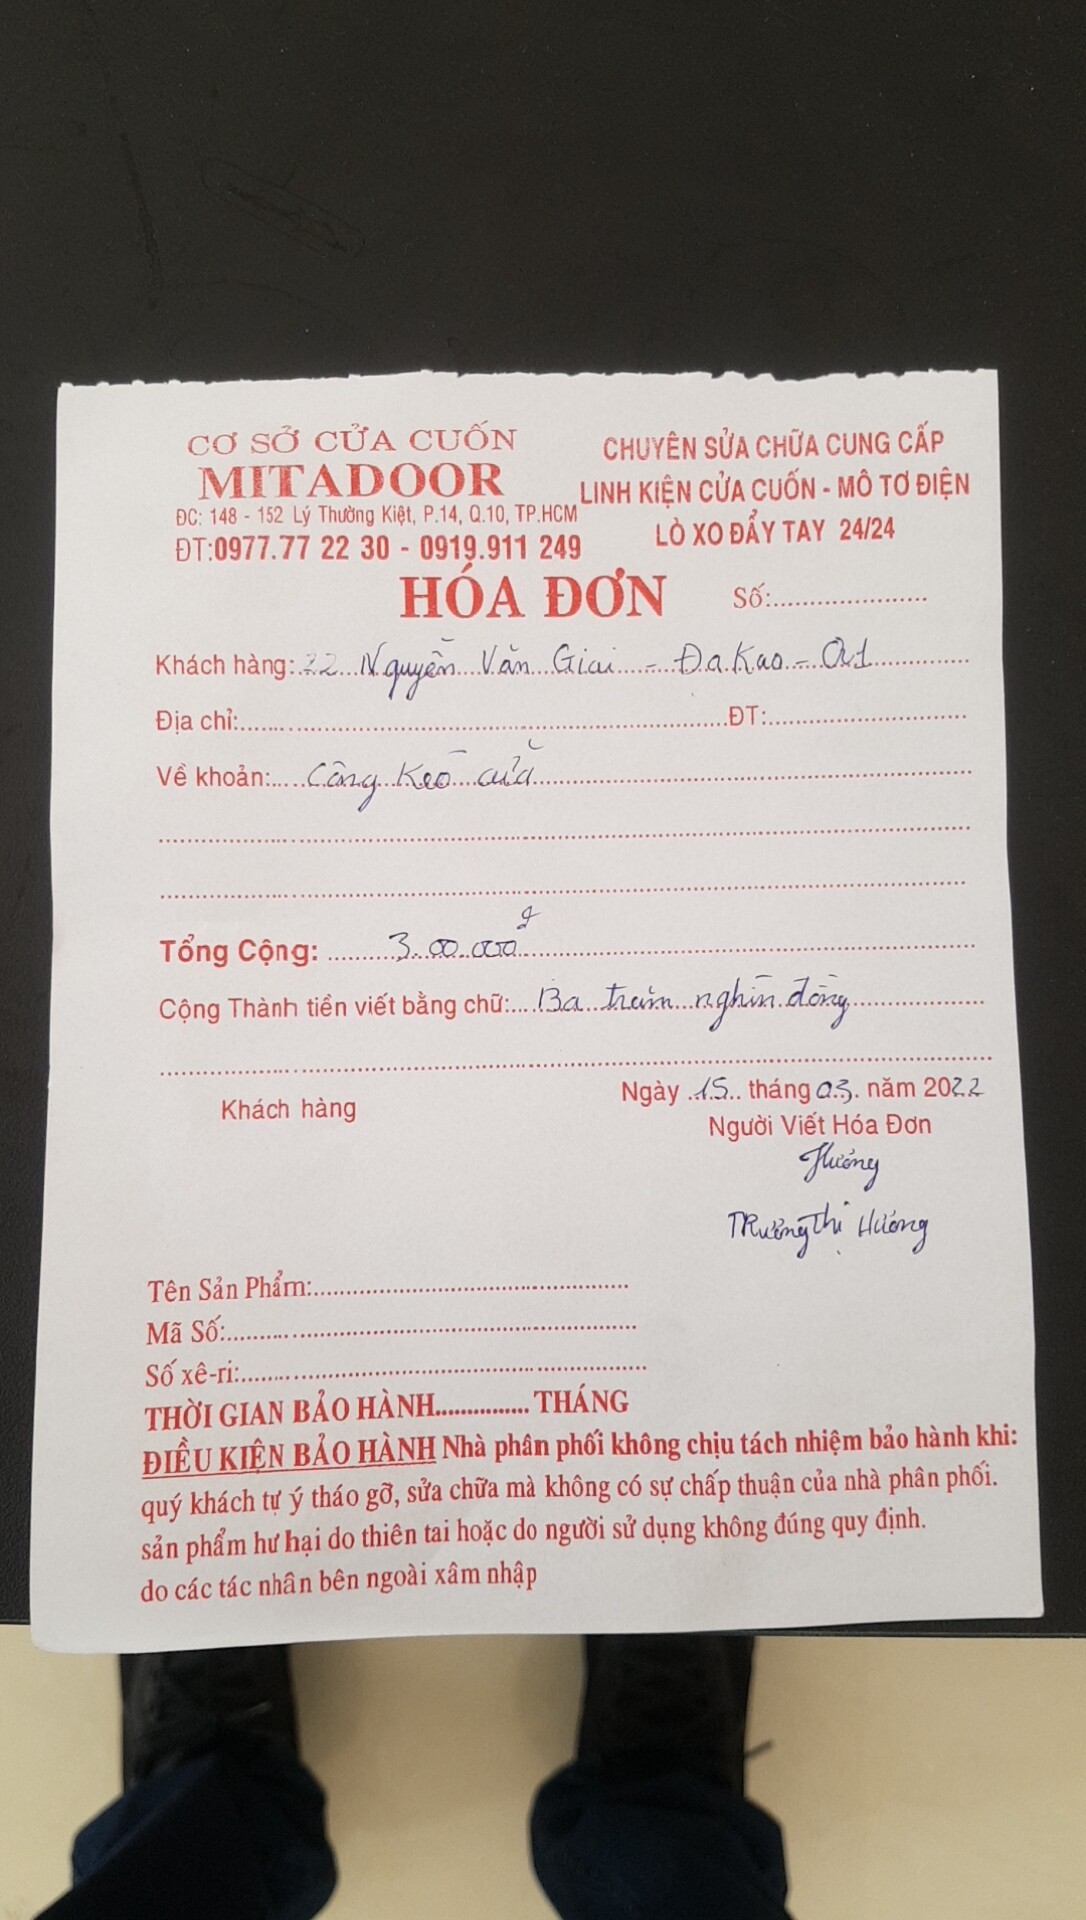 CƠ SỞ CỬA CUỐN
MITADOOR
ĐC: 148 - 152 Lý Thường Kiệt, P.14, Q.10, TP.HCM
ĐT:0977.77 22 30 - 0919.911 249
CHUYÊN SỬA CHỮA CUNG CẤP
LINH KIỆN CỬA CUỐN - MÔ TƠ ĐIỆN
LÒ XO ĐẨY TAY 24/24
HÓA ĐƠN
Số:
Khách hàng: 22 Nguyễn Văn Giai - Đa Kao - Q1
Địa chỉ: ĐT:
Về khoản: Công kéo cửa
Tổng Cộng: 3.00.000đ
Cộng Thành tiền viết bằng chữ: Ba trăm nghìn đồng
Ngày 15 tháng 03 năm 2022
Khách hàng
Người Viết Hóa Đơn
Hương
Trương Thị Hương
Tên Sản Phẩm:
Mã Số:
Số xê-ri:
THỜI GIAN BẢO HÀNH THÁNG
ĐIỀU KIỆN BẢO HÀNH Nhà phân phối không chịu tách nhiệm bảo hành khi:
quý khách tự ý tháo gỡ, sửa chữa mà không có sự chấp thuận của nhà phân phối.
sản phẩm hư hại do thiên tai hoặc do người sử dụng không đúng quy định.
do các tác nhân bên ngoài xâm nhập